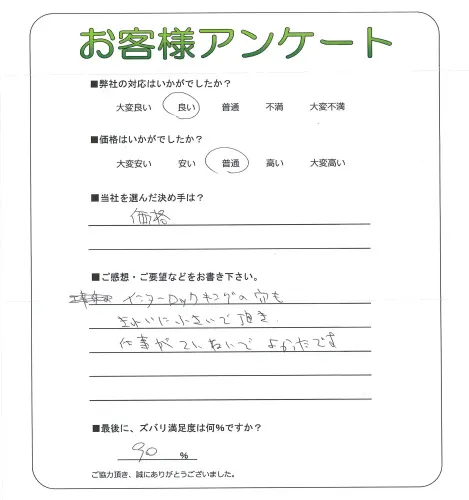 お客様アンケート
■弊社の対応はいかがでしたか？
大変良い 良い 普通 不満 大変不満
■価格はいかがでしたか？
大変安い 安い 普通 高い 大変高い
■当社を選んだ決め手は？
価格
■ご感想・ご要望などをお書き下さい。
インターロッキングの穴も
きれいに小さいで頂き
仕事がていねいでよかったです
■最後に、ズバリ満足度は何％ですか？
90 ％
ご協力頂き、誠にありがとうございました。